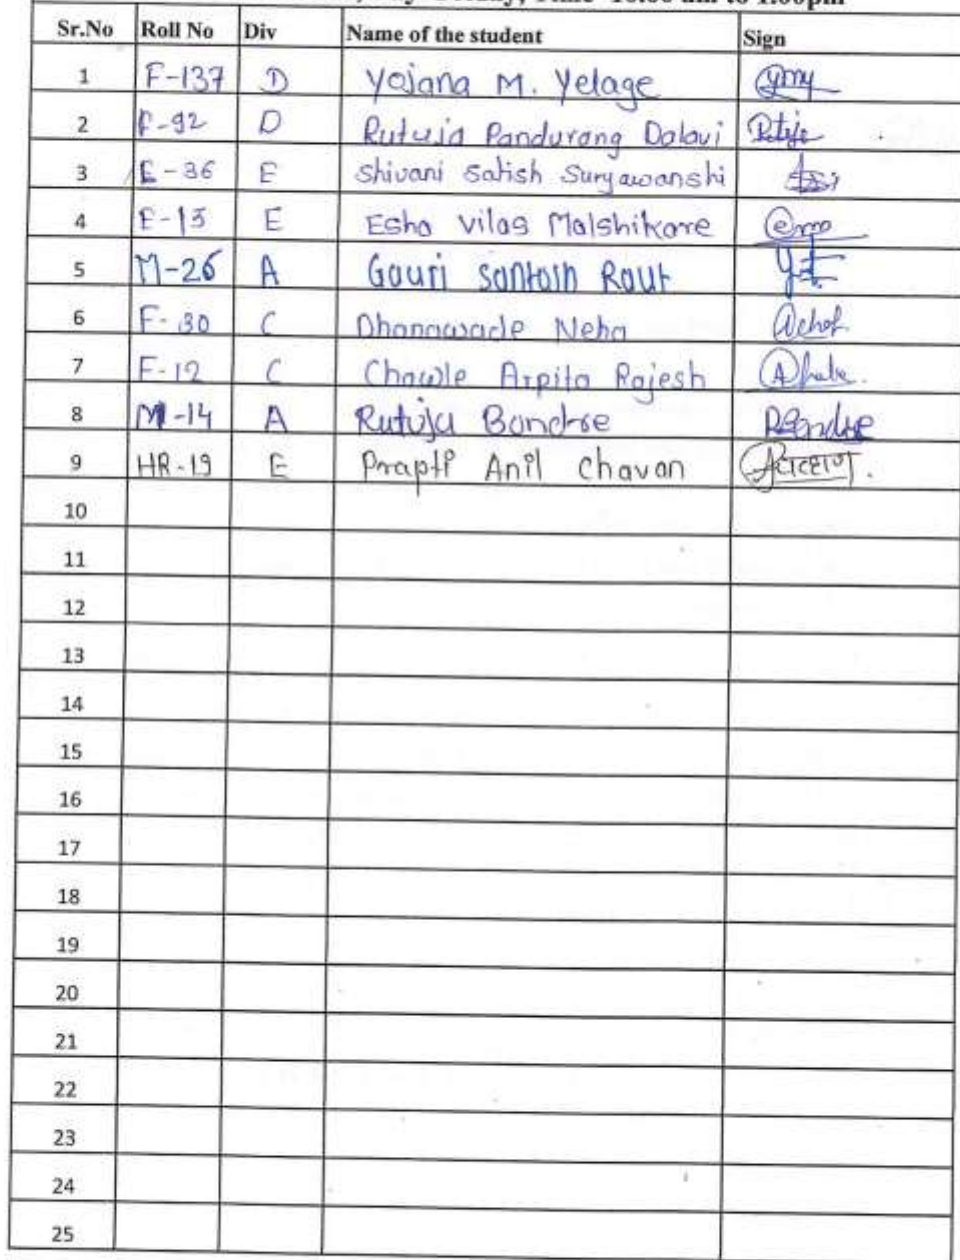 Time 10:00 am to 1:00pm
Sr.No Roll No Div Name of the student Sign
1 F-137 D Yojana M. Yelage
2 F-92 D Rutuja Pandurang Dalavi
3 E-36 E Shivani Satish Suryawanshi
4 E-15 E Esha Vilas Malshikare
5 M-26 A Gauri Santosh Raut
6 F-30 C Dhanawade Neha
7 F-12 C Chawle Arpita Rajesh
8 M-14 A Rutuja Bondre
9 HR-19 E Prapti Anil Chavan
10
11
12
13
14
15
16
17
18
19
20
21
22
23
24
25